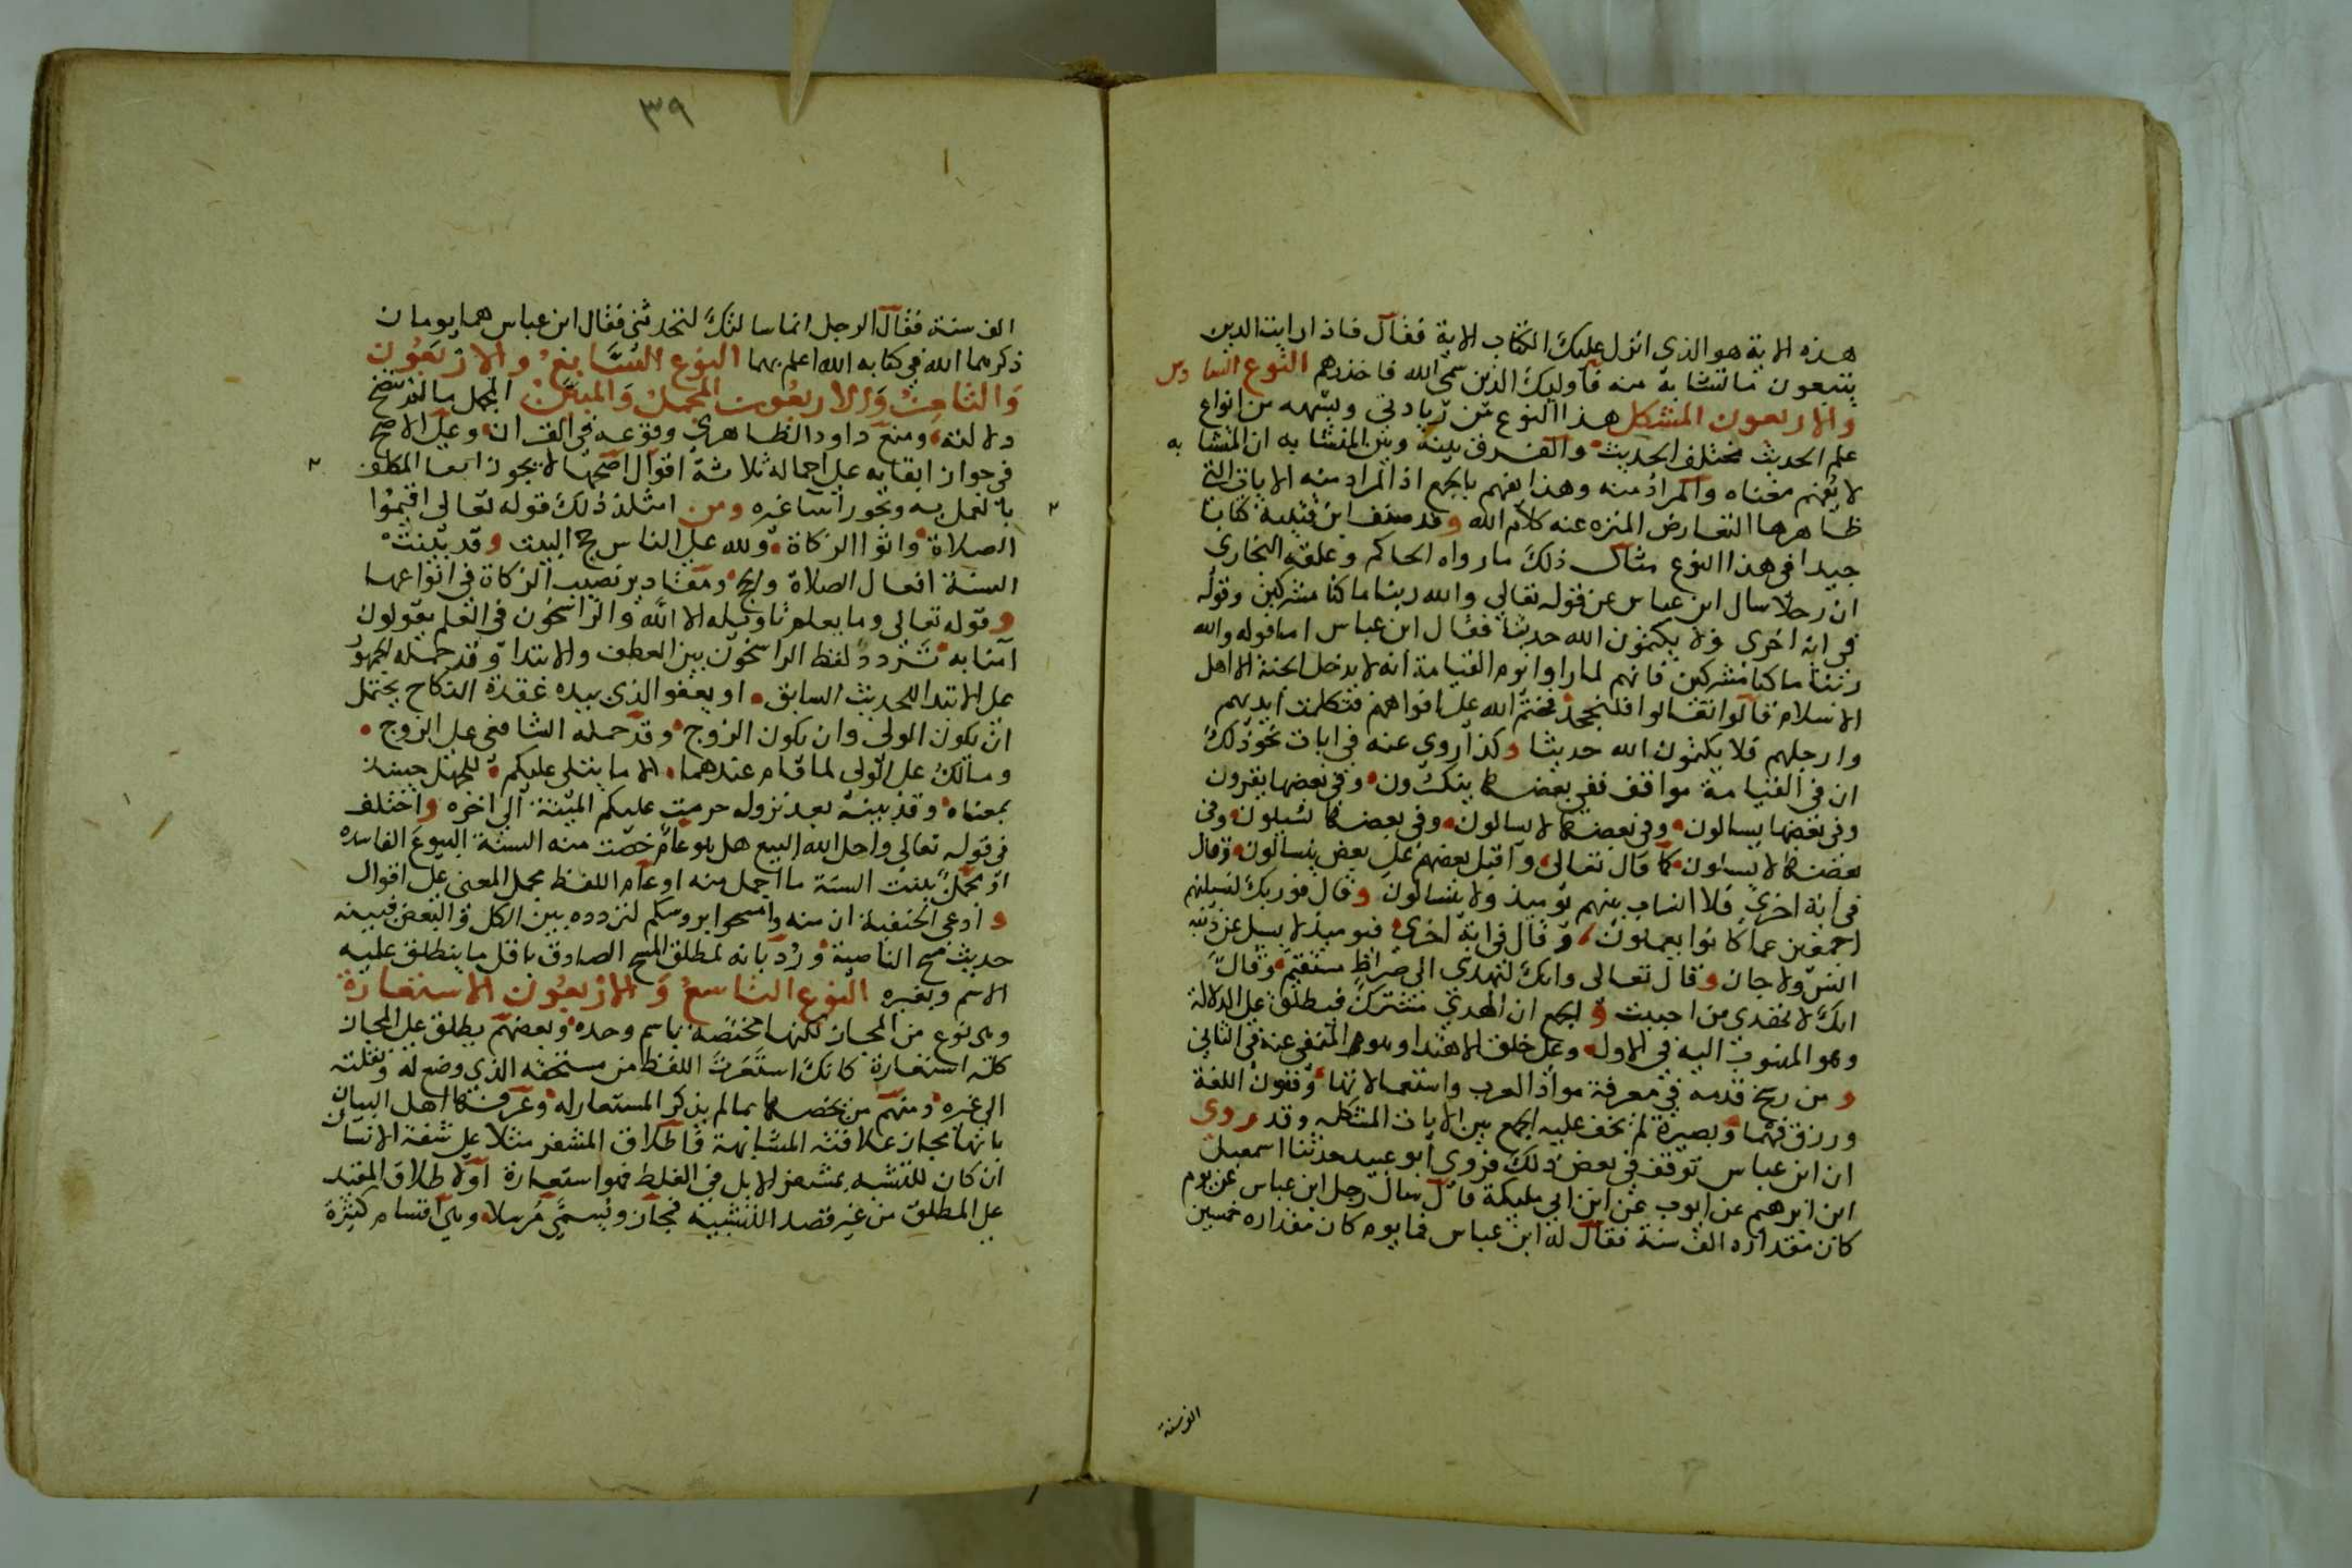 هذه الاية هو الذى انزل عليك الكتاب الاية فقال فاذا رايت الذين
يتبعون ما تشابه منه فاوليك الذين سمى الله فاحذرهم النوع السادس
والاربعون المشكل هذا النوع من زيادتى ويشبهه من انواع
علم الحديث مختلف الحديث والفرق بينه وبين المتشابه ان المتشابه
لا يفهم معناه والمراد منه وهذا يفهم بالجمع اذ المراد منه الايات التى
ظاهرها التعارض المنزه عنه كلام الله وقد صنف ابن قتيبة كتابا
جيدا فى هذا النوع مثال ذلك ما رواه الحاكم وعلقه البخارى
ان رجلا سال ابن عباس عن قوله تعالى والله ربنا ما كنا مشركين وقوله
فى اية اخرى ولا يكتمون الله حديثا فقال ابن عباس اما قوله والله
ربنا ما كنا مشركين فانهم لما راوا يوم القيامة انه لا يدخل الجنة الا اهل
الاسلام قالوا تعالوا فلنجحد فختم الله على افواههم فتكلمت ايديهم
وارجلهم فلا يكتمون الله حديثا وكذا روى عنه فى ايات نحو ذلك
ان فى القيامة مواقف ففى بعضها ينكرون وفى بعضها يقرون
وفى بعضها يسالون وفى بعضها لا يسالون وفى بعضها يسيلون وفى
بعضها لا يسلون كما قال تعالى واقبل بعضهم على بعض يتسالون وقال
فى اية اخرى فلا انساب بينهم يوميذ ولا يتسالون وقال فوربك لنسيلنهم
اجمعين عما كانوا يعملون وقال فى اية اخرى فيوميذ لا يسيل عن ذنبه
انس ولا جان وقال تعالى وانك لتهدى الى صراط مستقيم وقال
انك لا تهدى من احببت والجمع ان الهدى مشترك فيطلق على الدلالة
وهو المنسوب اليه فى الاول وعلى خلق الاهتداء وهو المنفى عنه فى الثانى
ومن رسخ قدمه فى معرفة مواد العرب واستعمالاتها وفنون اللغة
ورزق فهما وبصيرة لم يخف عليه الجمع بين الايات المشكله وقد روى
ان ابن عباس توقف فى بعض ذلك فروى ابو عبيد حدثنا اسمعيل
ابن ابرهيم عن ايوب عن ابن ابى مليكة قال سال رجل ابن عباس عن يوم
كان مقداره الف سنة فقال له ابن عباس فما يوم كان مقداره خمسين
الف سنة
٣٩
الف سنة فقال الرجل انما سالتك لتحدثنى فقال ابن عباس هما يومان
ذكرهما الله فى كتابه الله اعلم بهما النوع السابع والاربعون
والثامن والاربعون المجمل والمبين المجمل ما لم تتضح
دلالته ومنع داود الظاهرى وقوعه فى القران وعلى الاصح
فى جواز ابقايه على اجماله ثلاثة اقوال اصحها لا يجوز ابقا المكلف
بالعمل به وتجوز ابقا غيره ومن امثلة ذلك قوله تعالى اقيموا
الصلاة واتوا الزكاة ولله على الناس حج البيت وقد بينت
السنة افعال الصلاة والحج ومقادير نصيب الزكاة فى انواعها
وقوله تعالى وما يعلم تاويله الا الله والراسخون فى العلم يقولون
امنا به تردد لفظ الراسخون بين العطف والابتدا وقد حمله الجمهور
على الابتدا للحديث السابق او يعفو الذى بيده عقدة النكاح يحتمل
ان يكون الولى وان يكون الزوج وقد حمله الشافعى على الزوج
ومالك على الولى لما قام عندهما الا ما يتلى عليكم للجهل حينيذ
بمعناه وقد بينه بعد نزوله حرمت عليكم الميتة الى اخره واختلف
فى قوله تعالى واحل الله البيع هل هو عام خصت منه السنة البيوع الفاسده
او مجمل بينت السنة ما اجمل منه او عام اللفظ مجمل المعنى على اقوال
وادعى الحنفية ان منه وامسحوا بروسكم لتردده بين الكل والبعض فبينه
حديث مسح الناصية ورد بانه لمطلق المسح الصادق باقل ما ينطلق عليه
الاسم وبغيره النوع التاسع والاربعون الاستعارة
وهى نوع من المجاز لكنها مختصة باسم وحده وبعضهم يطلق على المجاز
كله استعارة كانك استعرت اللفظ من مستحقه الذى وضع له ونقلته
الى غيره ومنهم من يخصها بما لم يذكر المستعار له وعرفها اهل البيان
بانها مجاز علاقته المشابهة فاطلاق المشفر مثلا على شفة الانسان
ان كان للتشبه بمشفر الابل فى الغلظ فهو استعارة او لاطلاق المقيد
على المطلق من غير قصد التشبيه فمجاز ويسمى مرسلا وهى اقسام كثيرة